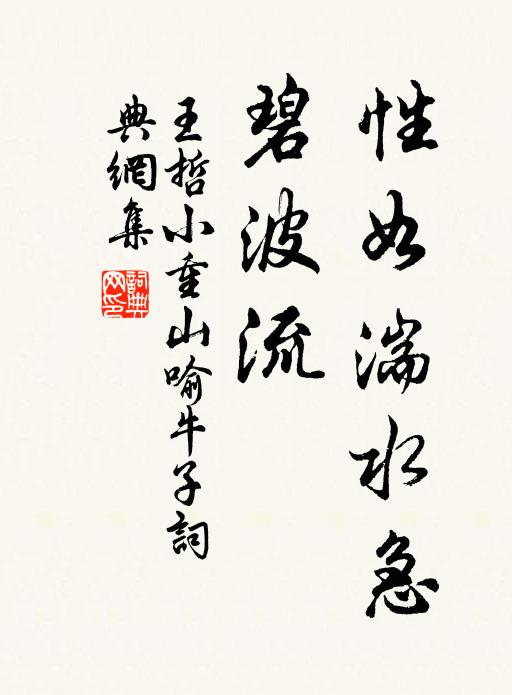 性如湍水急
碧波流
王哲小重山喻牛子詞
典網集
詞典
网印